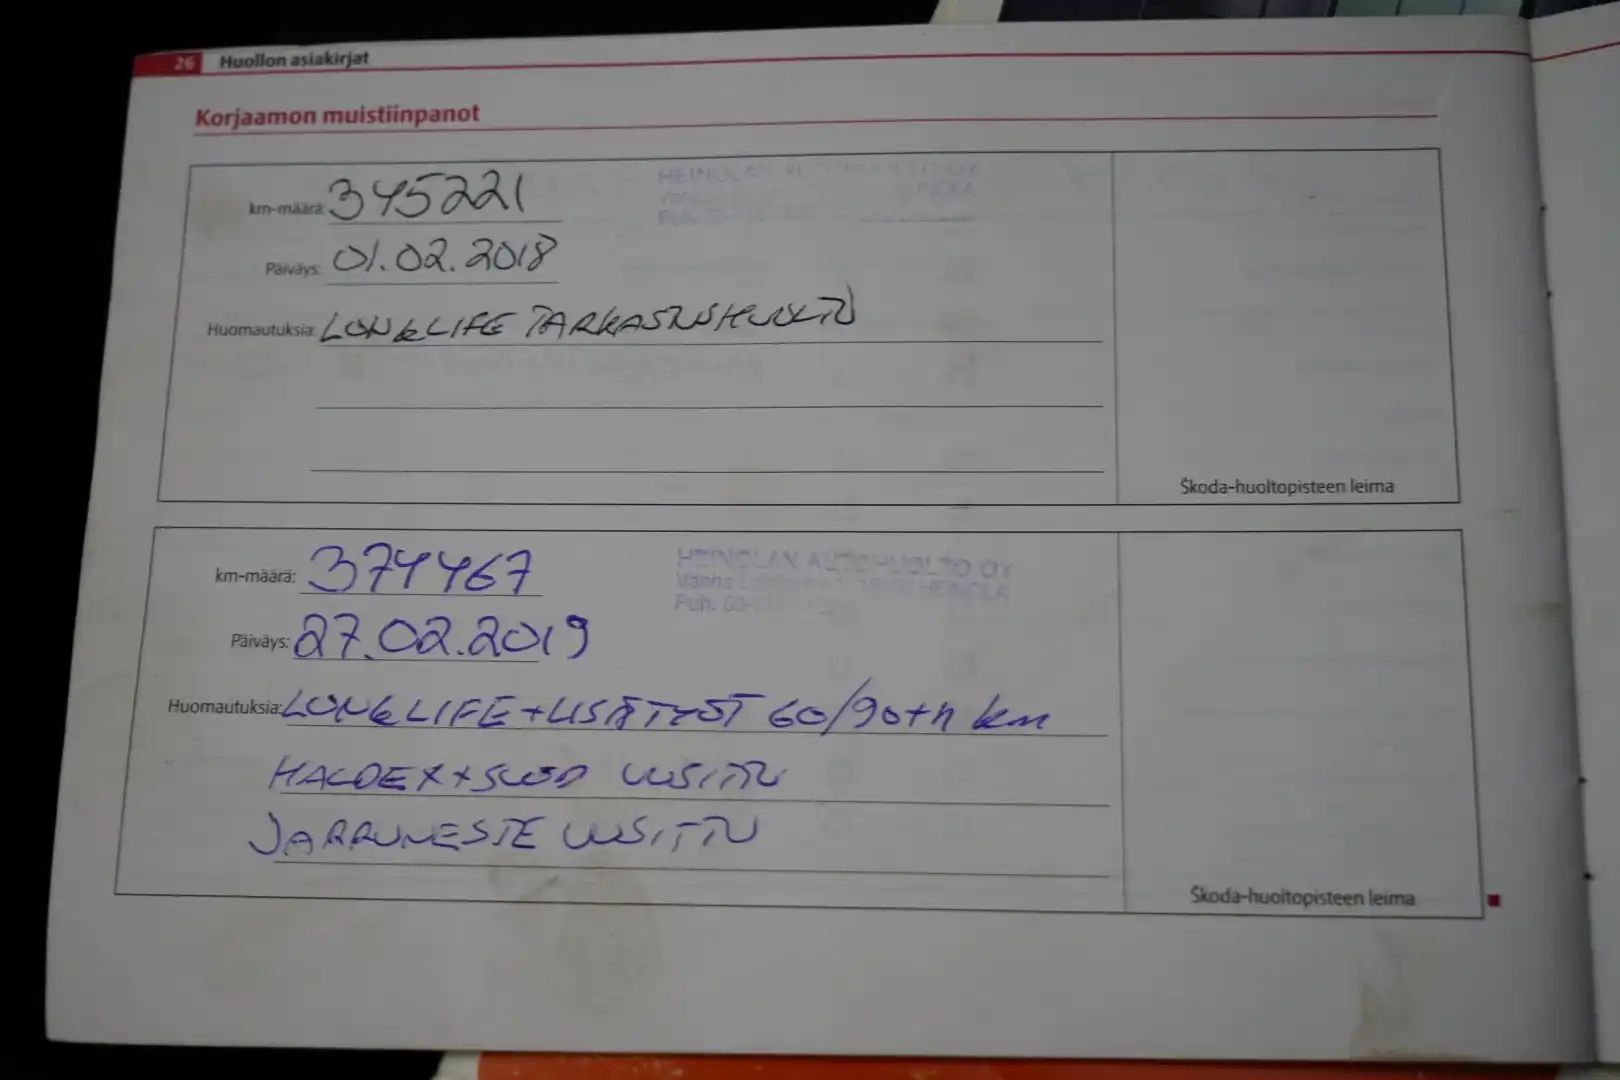 26 Huollon asiakirjat
Korjaamon muistiinpanot
HEINOLAN
km-määrä: 345221
Päiväys: 01.02.2018
Huomautuksia: LONGLIFE TARKASTUSHUOLTO
Škoda-huoltopisteen leima
HEINOLAN AUTOHUOLTO OY
km-määrä: 374467
Vanha HEINOLA
Puh.
Päiväys: 27.02.2019
Huomautuksia: LONGLIFE + LISÄTYÖT 60/90t+n km
HALDEX + SUOD UUSITTU
JARRUNESTE UUSITTU
Škoda-huoltopisteen leima